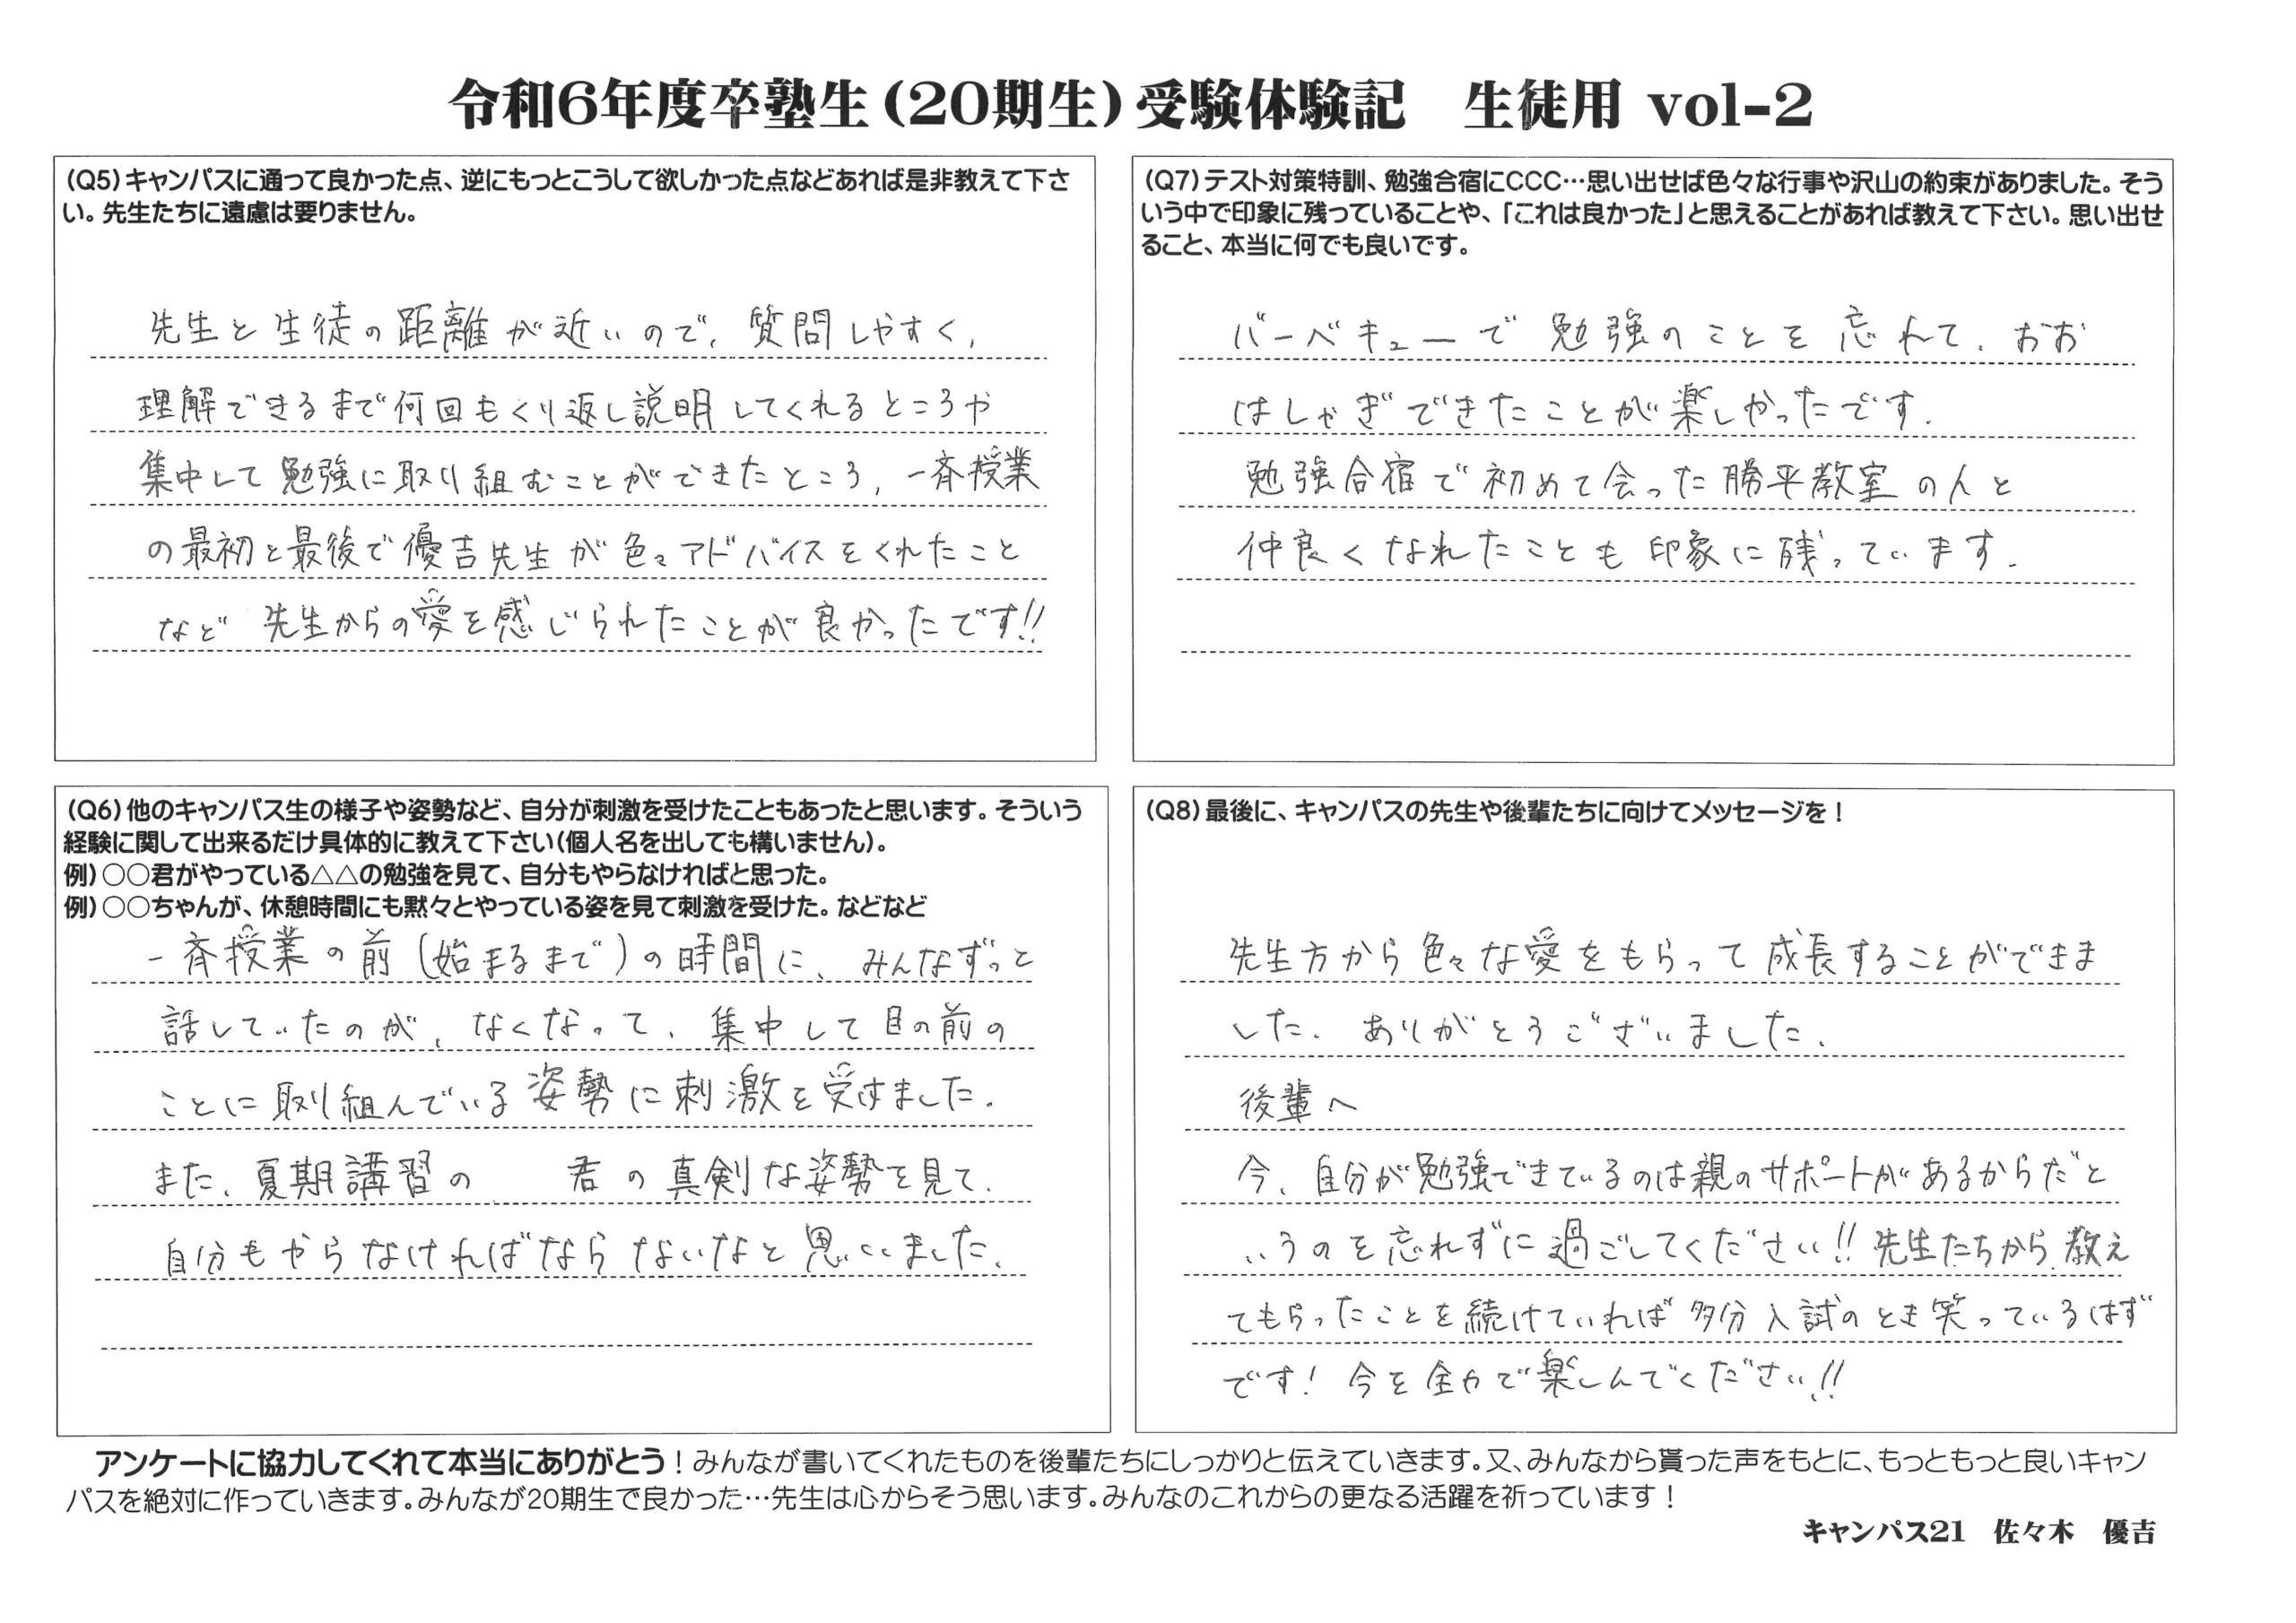 令和6年度卒塾生(20期生)受験体験記　生徒用 vol-2
(Q5)キャンパスに通って良かった点、逆にもっとこうして欲しかった点などあれば是非教えて下さ
い。先生たちに遠慮は要りません。
先生と生徒の距離が近いので、質問しやすく、
理解できるまで何回もくり返し説明してくれるところや
集中して勉強に取り組むことができたところ、一斉授業
の最初と最後で優吉先生が色々アドバイスをくれたこと
など 先生からの愛を感じられたことが良かったです!!
(Q6)他のキャンパス生の様子や姿勢など、自分が刺激を受けたこともあったと思います。そういう
経験に関して出来るだけ具体的に教えて下さい(個人名を出しても構いません)。
例)○○君がやっている△△の勉強を見て、自分もやらなければと思った。
例)○○ちゃんが、休憩時間にも黙々とやっている姿を見て刺激を受けた。などなど
一斉授業の前(始まるまで)の時間に、みんなずっと
話していたのが、なくなって、集中して目の前の
ことに取り組んでいる姿勢に刺激を受けました。
また、夏期講習の　君の真剣な姿勢を見て、
自分もやらなければならないなと思いました。
(Q7)テスト対策特訓、勉強合宿にCCC…思い出せば色々な行事や沢山の約束がありました。そう
いう中で印象に残っていることや、「これは良かった」と思えることがあれば教えて下さい。思い出せ
ること、本当に何でも良いです。
バーベキューで勉強のことを忘れて、おお
はしゃぎできたことが楽しかったです。
勉強合宿で初めて会った勝平教室の人と
仲良くなれたことも印象に残っています。
(Q8)最後に、キャンパスの先生や後輩たちに向けてメッセージを！
先生方から色々な愛をもらって成長することができま
した。ありがとうございました。
後輩へ
今、自分が勉強できているのは親のサポートがあるからだと
いうのを忘れずに過ごしてください!! 先生たちから教え
てもらったことを続けていれば多分入試のとき笑っているはず
です! 今を全力で楽しんでください!!
アンケートに協力してくれて本当にありがとう！みんなが書いてくれたものを後輩たちにしっかりと伝えていきます。又、みんなから貰った声をもとに、もっともっと良いキャン
パスを絶対に作っていきます。みんなが20期生で良かった…先生は心からそう思います。みんなのこれからの更なる活躍を祈っています！
キャンパス21　佐々木　優吉